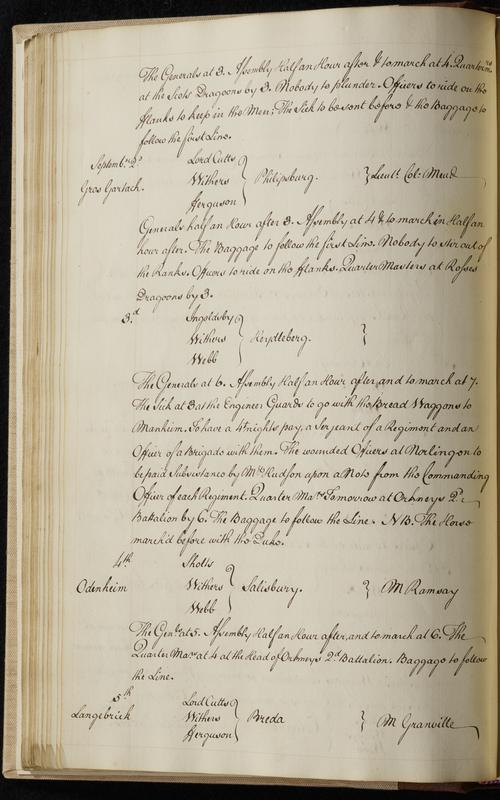 The Generals at 3. Assembly Half an Hour after & to march at 4. Quartermrs
at the Scots Dragoons by 3. Nobody to plunder. Officers to ride on the
fflanks to keep in the Men; The Sick to be sent before & the Baggage to
follow the first Line.
Septembr. 2d. Lord Cutts
Gros Gartach. Withers } Philipsburg. } Lieutt. Col: Mead
fferguson
Generals half an Hour after 3. Assembly at 4 & to march in Half an
hour after. The Baggage to follow the first Line. Nobody to stir out of
the Ranks. Officers to ride on the fflanks. Quarter Masters at Rosses
Dragoons by 3.
3.d Ingoldsby
Withers } Heydleberg. }
Webb
The Generals at 6. Assembly Half an Hour after, and to march at 7.
The Sick at 3 at the Engineer Guards to go with the Bread Waggons to
Manheim. To have a 4tnights pay, a Serjeant of a Regiment and an
Officer of a Brigade with them. The wounded Officers at Norlingen to
be paid Subsistance by Mr. Hudson upon a Note from the Commanding
Officer of each Regiment. Quarter Mars. Tomorrow at Orkneys 2d.
Battalion by 6. The Baggage to follow the Line. NB. The Horse
march'd before with the Duke.
4th Sholts
Odenheim Withers } Salisbury. } M Ramsay
Webb
The Genls. at 5. Assembly Half an Hour after, and to march at 6. The
Quarter Mars. at 4 at the Head of Orkneys 2d. Battalion. Baggage to follow
the Line.
5th Lord Cutts
Langebrick Withers } Breda } M Granville
fferguson